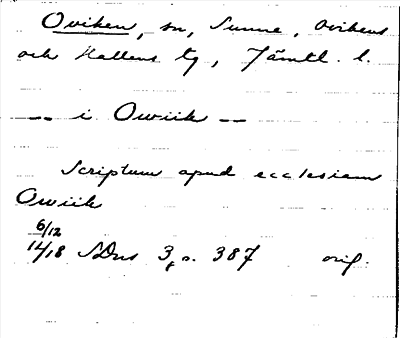 Oviken, sn, Sunne, Ovikens
och Hallens tg, Jämtl. l.
-- i Owiik --
Scriptum apud ecclesiam
Owiik
6/12
1418 SDns 3, s. 387 orig.